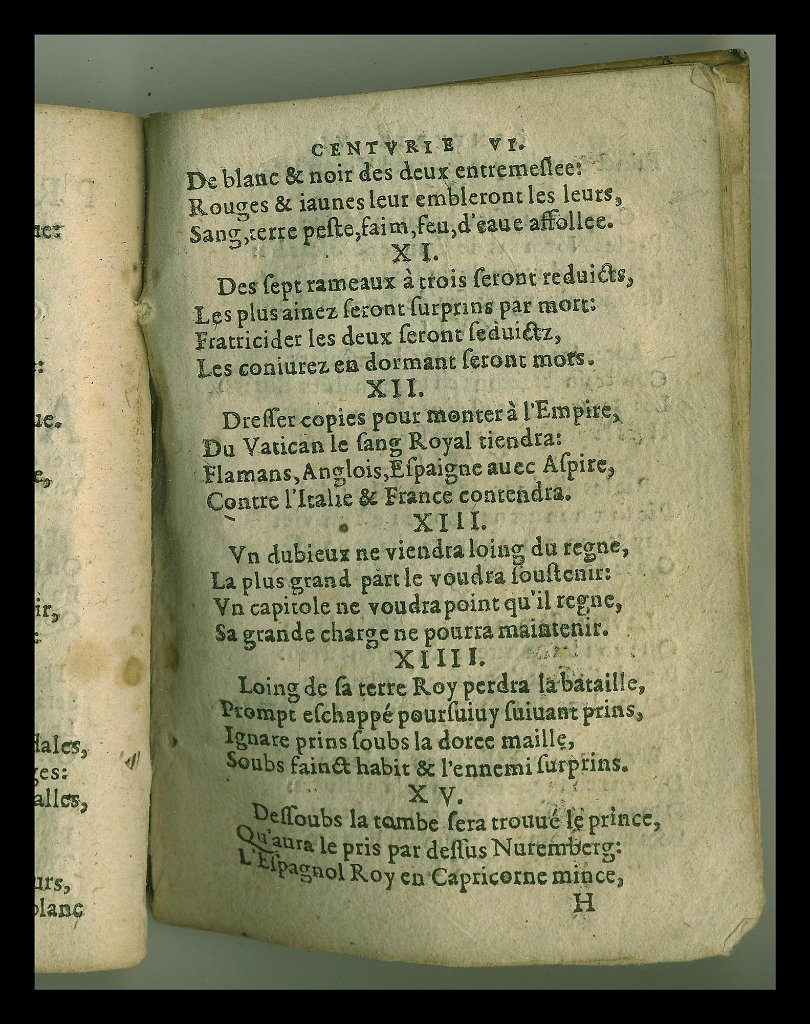 CENTVRIE VI.
De blanc & noir des deux entremeſlee:
Rouges & iaunes leur embleront les leurs,
Sang, terre peſte, faim, feu, d'eaue affollee.
XI.
Des ſept rameaux à trois ſeront reduicts,
Les plus ainez ſeront ſurprins par mort:
Fratricider les deux ſeront ſeduictz,
Les coniurez en dormant ſeront mors.
XII.
Dreſſer copies pour monter à l'Empire,
Du Vatican le ſang Royal tiendra:
Flamans, Anglois, Eſpaigne auec Aſpire,
Contre l'Italie & France contendra.
XIII.
Vn dubieux ne viendra loing du regne,
La plus grand part le voudra ſouſtenir:
Vn capitole ne voudra point qu'il regne,
Sa grande charge ne pourra maintenir.
XIIII.
Loing de ſa terre Roy perdra la bataille,
Prompt eſchappé pourſuiuy ſuiuant prins,
Ignare prins ſoubs la doree maille,
Soubs fainct habit & l'ennemi ſurprins.
XV.
Deſſoubs la tombe ſera trouué le prince,
Qu'aura le pris par deſſus Nuremberg:
L'Eſpagnol Roy en Capricorne mince,
H